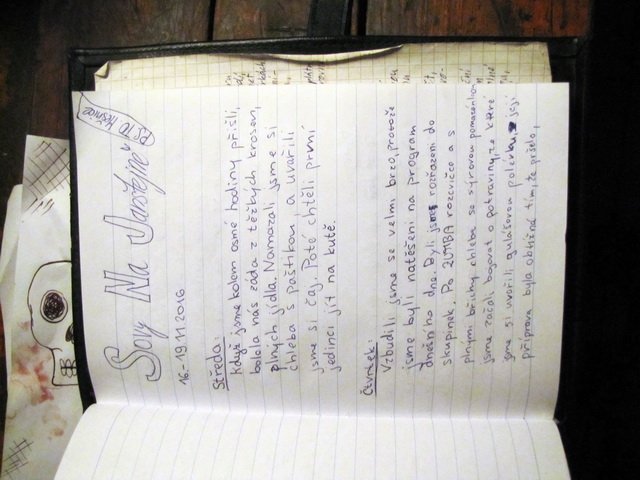 Sovy Na Varštejně
16.-19.11.2016
Středa:
Když jsme kolem osmé hodiny přišli,
bolela nás záda z těžkých krosen,
plných jídla. Namazali jsme si
chleba s paštikou a uvařili
jsme si čaj. Poté chtěli první
jedinci jít na kutě.
Čtvrtek:
Vzbudili jsme se velmi brzo, protože
jsme byli natěšení na program
dnešního dne. Byli jsme rozřazeni do
skupinek. Po ZUMBA rozcvičce a s
plnými břichy chleba se sýrovou pomazánkou
jsme začali bojovat o potraviny, ze které
jsme si uvařili gulášovou polévku. Její
příprava byla obtížná tím, že pršelo,